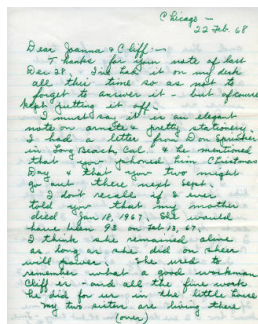 Chicago -
22 Feb. 68
Dear Joanna & Cliff: -
Thanks for your note of last
Dec 28. I've had it on my desk
all this time so as not to
forget to answer it - but of course
kept putting it off.
I must say it is an elegant
note on ornate & pretty stationery.
I had a letter from Don
in Long Beach, Cal & he mentioned
that you phoned him Christmas
Day & that you two might
go out there next Sept.
I don't recall if I ever
told you that my mother
died Jan 18, 1967. She would
have been 93 on Feb 13, 67.
I think she remained alive
as long as she did on sheer
will power. She used to
remember what a good workman
Cliff is - and all the fine work
he did for us in the little house
my two sisters are living there
(over)